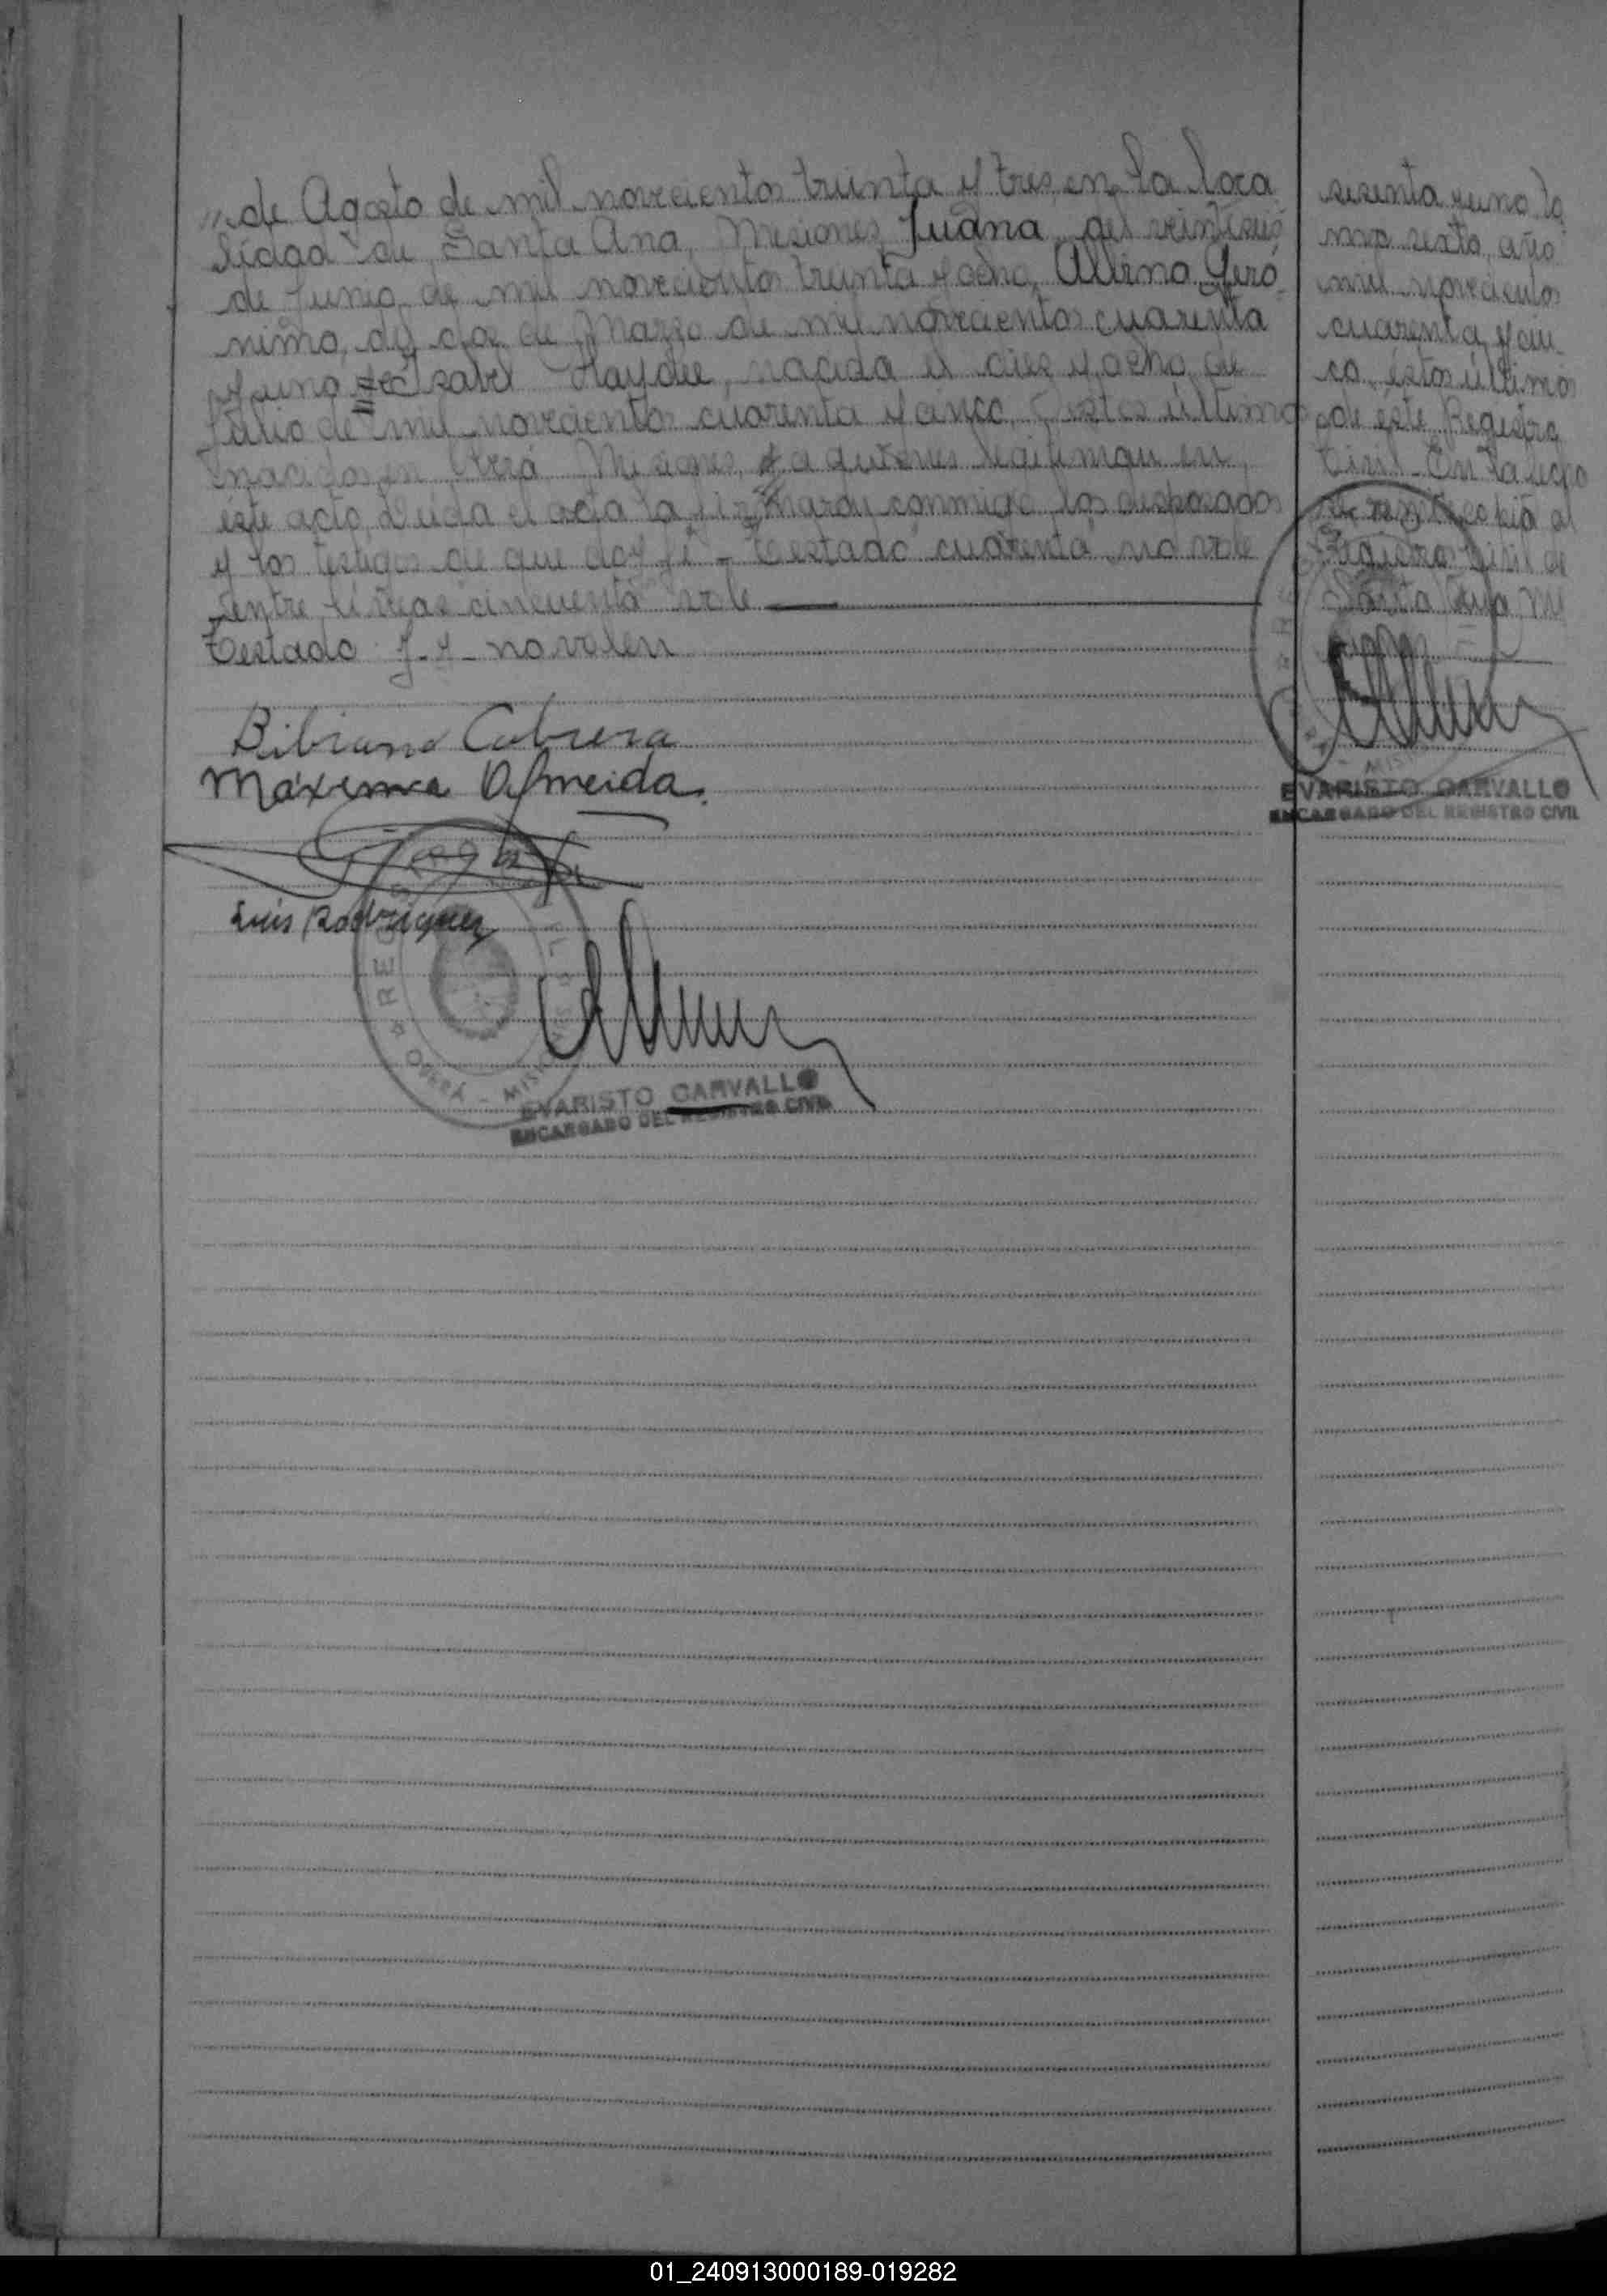 de Agosto de mil novecientos treinta y tres en la loca
lidad de Santa Ana, Misiones, Juana, del veintiseis
de Junio de mil novecientos treinta y ocho, Albino Geró
nimo, del dos de Marzo de mil novecientos cuarenta
y uno Isabel Haydee, nacida el diez y ocho de
Julio de mil novecientos cuarenta y cinco, estos últimos
nacidos en Oberá Misiones, a quienes legitiman en
éste acto. Leída el acta la firmaron conmigo los desposados
y los testigos de que doy fé - Testado "cuarenta" no vale
Entre líneas cincuenta vale
Testado y - y - no valen
Bibiano Cabrera
Máxima Almeida
Luis Rodriguez
OBERÁ - MISIONES
EVARISTO CARVALLO
ENCARGADO DEL REGISTRO CIVIL
sesenta y uno, to
mo sexto, año
mil novecientos
cuarenta y cin
co, éstos últimos
de éste Registro
Civil. En la fecha
se remite copia al
Registro Civil de
Santa Ana Mi
siones
EVARISTO CARVALLO
ENCARGADO DEL REGISTRO CIVIL
01_240913000189-019282